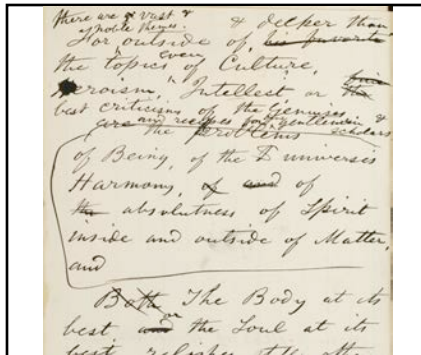 there are vast &
noble themes.
For outside of, his favorite & deeper than
the topics even of Culture,
Heroism, Intellect or the
best criticisms of the Geniuses,
are and recipes for gentlemen &
the problems scholars
of Being, of the universes
Harmony, of and of
the absolutness of Spirit
inside and outside of Matter,
and
Both The Body at its
best and or the Soul at its
best relishes the